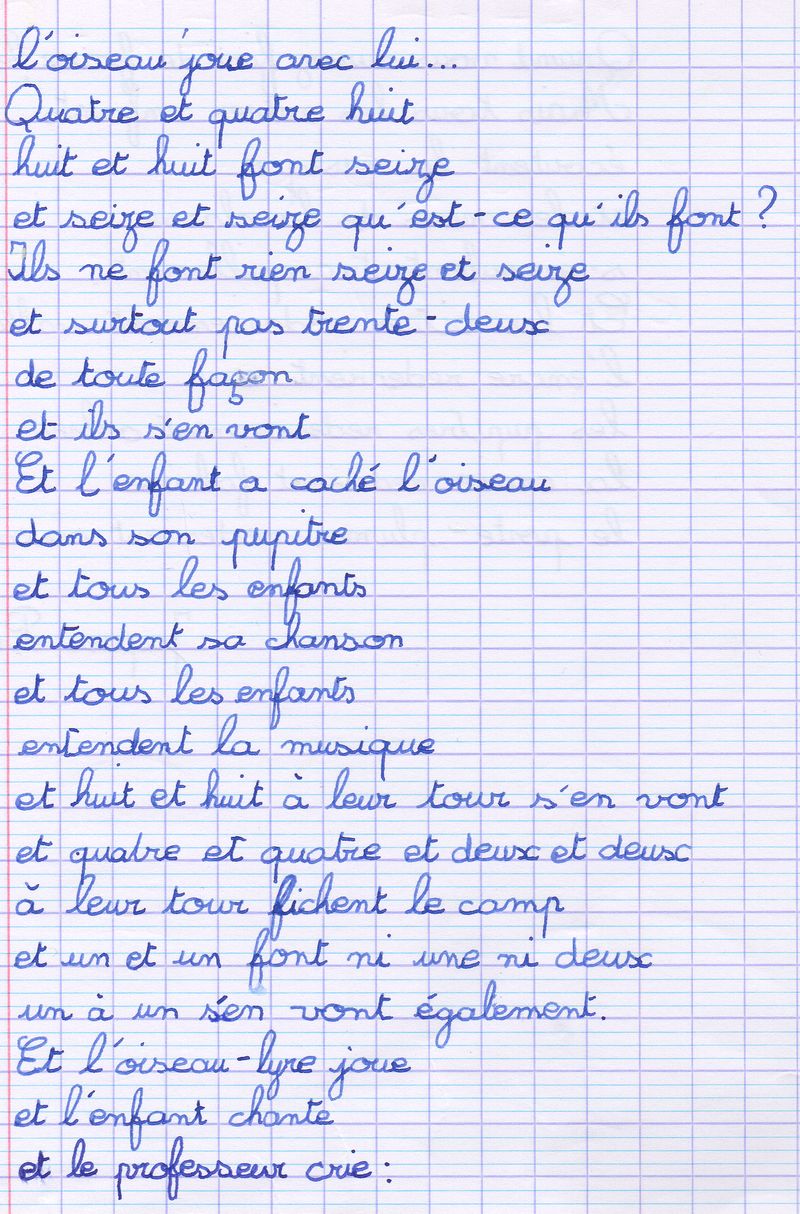 l'oiseau joue avec lui...
Quatre et quatre huit
huit et huit font seize
et seize et seize qu'est-ce qu'ils font ?
Ils ne font rien seize et seize
et surtout pas trente-deux
de toute façon
et ils s'en vont
Et l'enfant a caché l'oiseau
dans son pupitre
et tous les enfants
entendent sa chanson
et tous les enfants
entendent la musique
et huit et huit à leur tour s'en vont
et quatre et quatre et deux et deux
à leur tour fichent le camp
et un et un font ni une ni deux
un à un s'en vont également.
Et l'oiseau-lyre joue
et l'enfant chante
et le professeur crie :